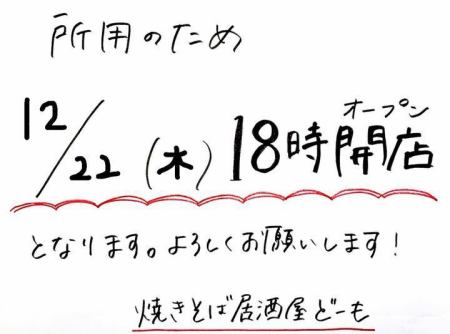 所用のため
オープン
12/22(木)18時開店
となります。よろしくお願いします!
焼きそば居酒屋どーも